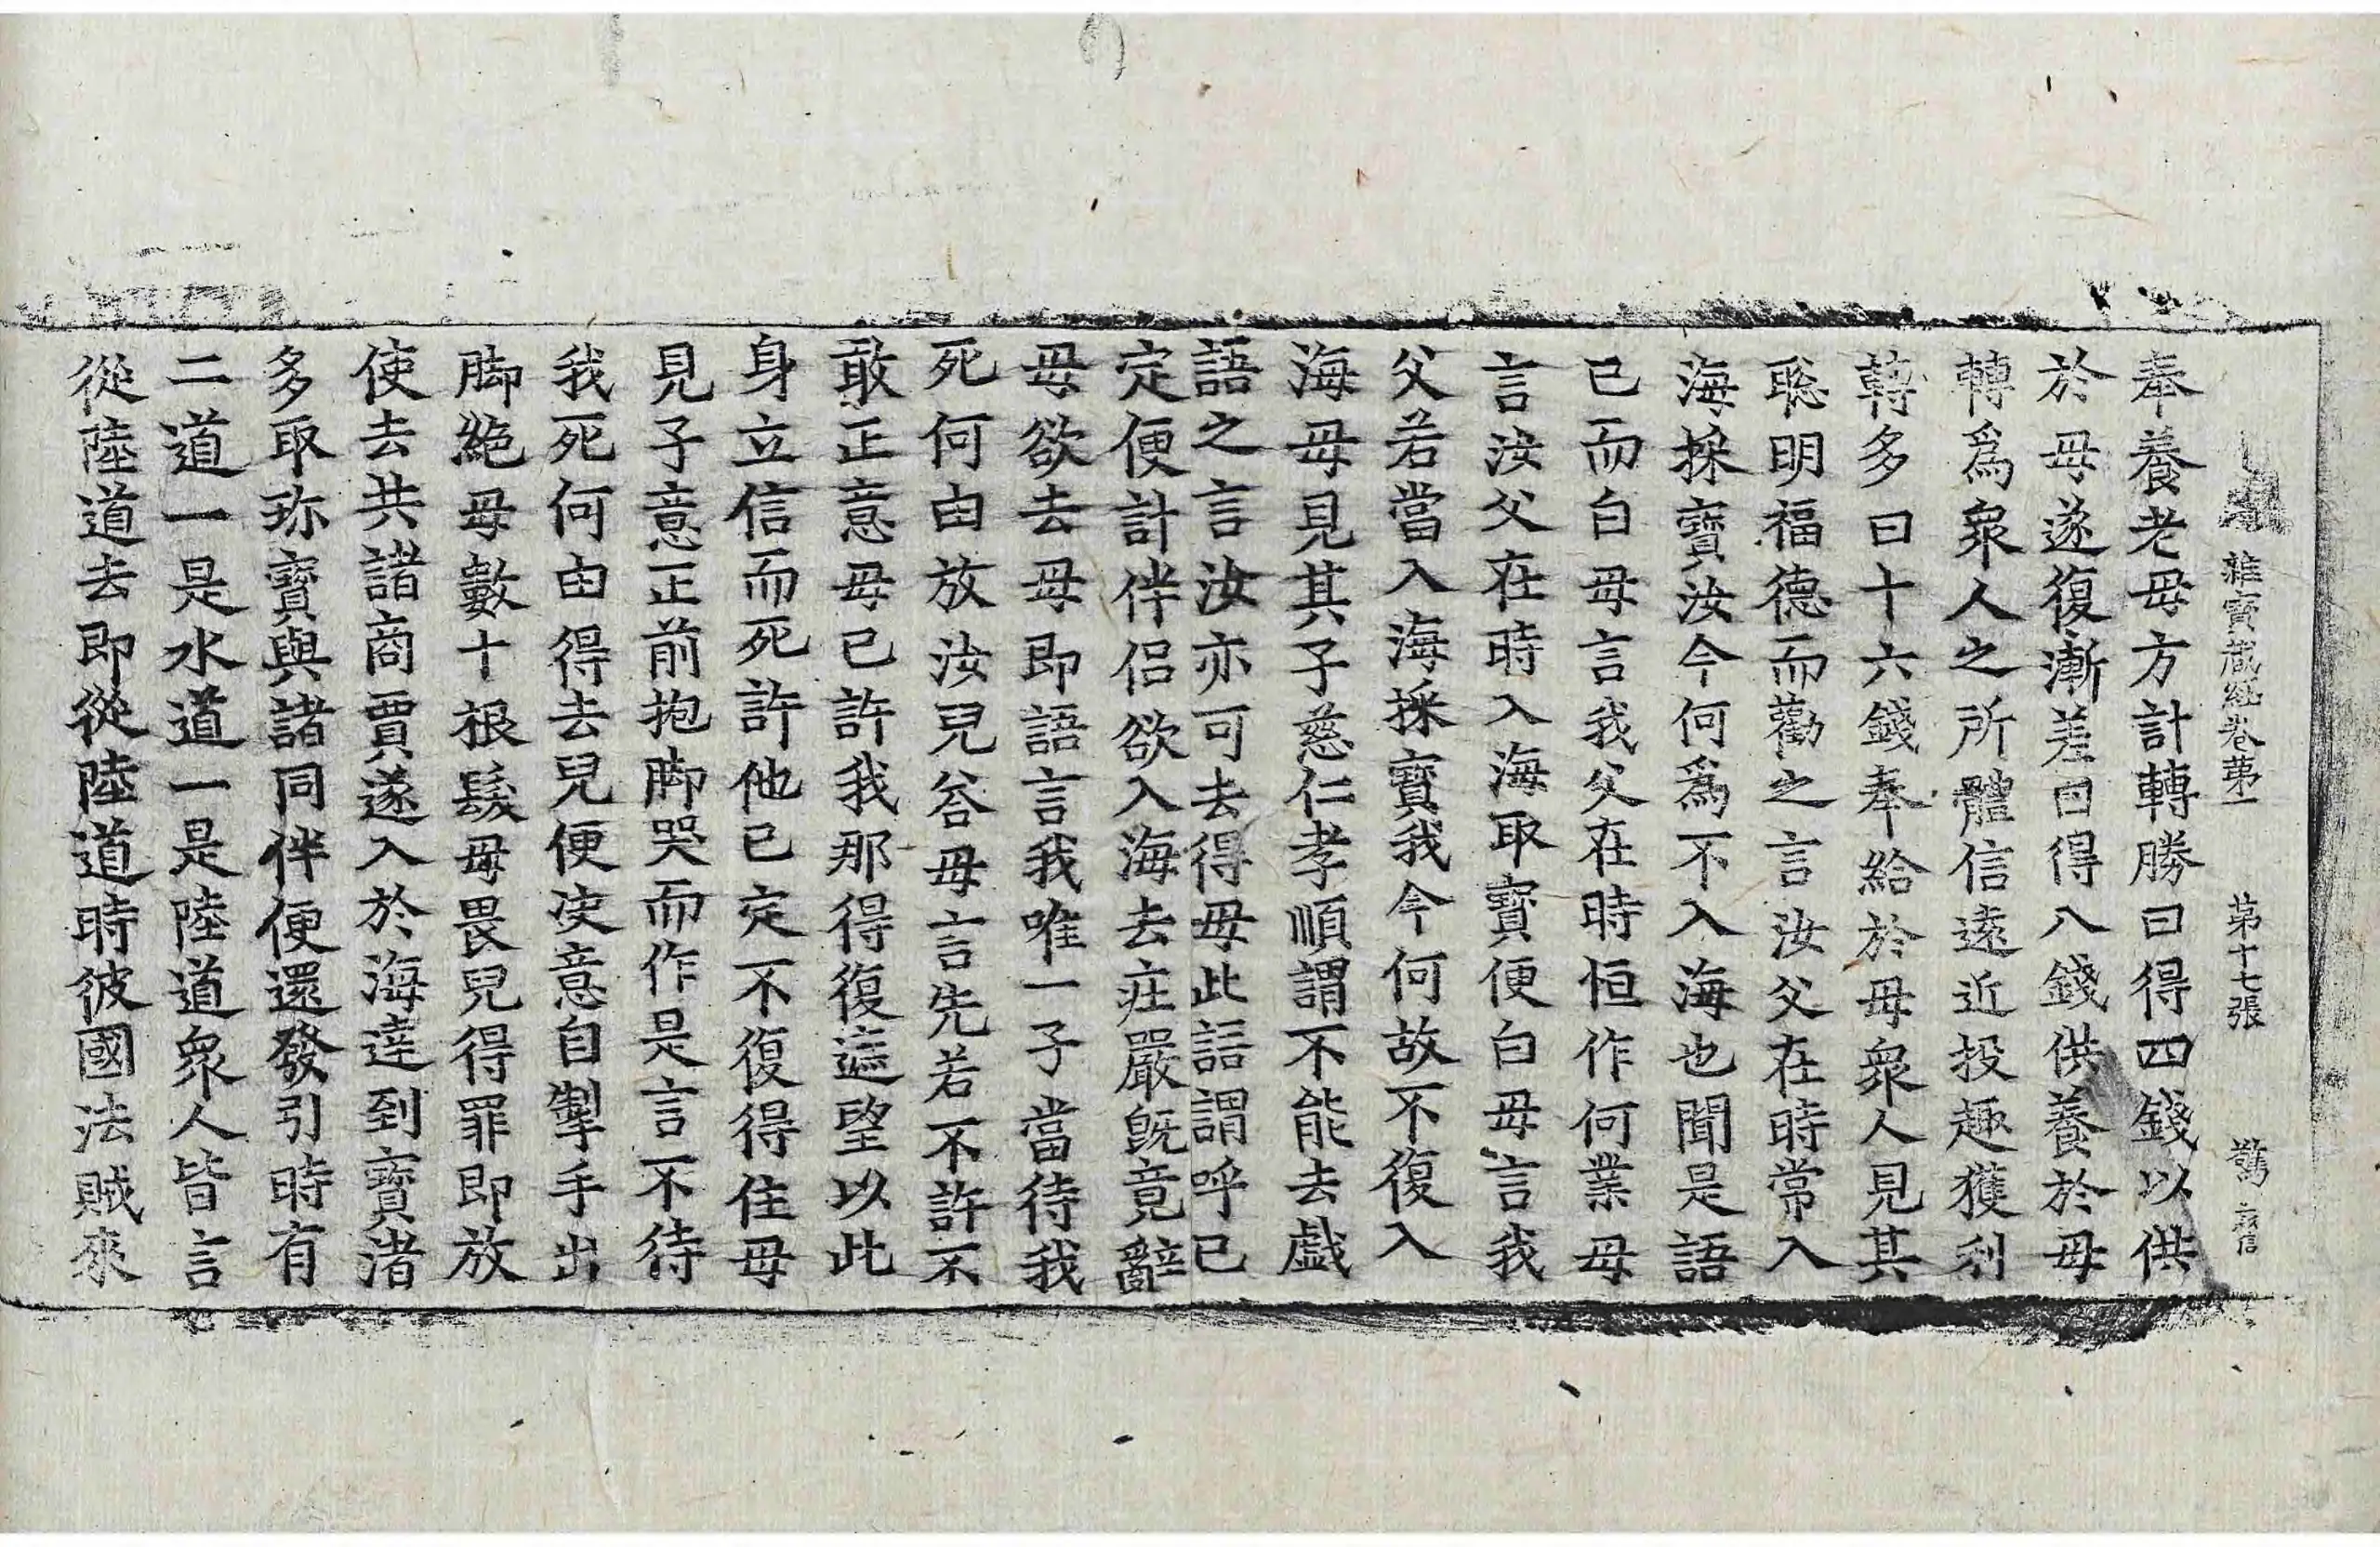 雜寶藏經卷第一 第十七張 驚
奉養老母方計轉勝日得四錢以供
於母遂復漸差日得八錢供養於母
轉爲衆人之所體信遠近投趣獲利
轉多日十六錢奉給於母衆人見其
聡明福德而勸之言汝父在時常入
海採寶汝今何爲不入海也聞是語
已而白母言我父在時恒作何業母
言汝父在時入海取寶便白母言我
父若當入海採寶我今何故不復入
海母見其子慈仁孝順謂不能去戯
語之言汝亦可去得母此語謂呼已
定便計伴侣欲入海去莊嚴旣竟辭
母欲去母即語言我唯一子當待我
死何由放汝兒荅母言先若不許不
敢正意母已許我那得復遮望以此
身立信而死許他已定不復得住母
見子意正前抱脚哭而作是言不待
我死何由得去兒便決意自掣手出
脚絶母數十根髮母畏兒得罪即放
使去共諸商賈遂入於海達到寶渚
多取珎寶與諸同伴便還發引時有
二道一是水道一是陸道衆人皆言
從陸道去即從陸道時彼國法賊來